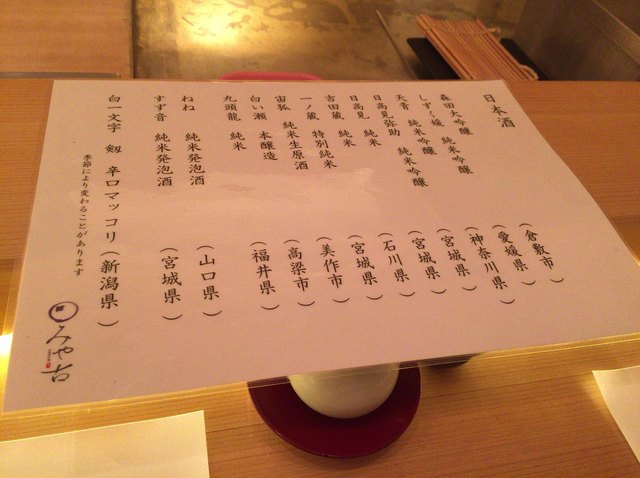 日本酒
森田大吟醸 純米吟醸 (倉敷市)
しずく媛 純米吟醸 (愛媛県)
天青 純米吟醸 (神奈川県)
日高見弥助 純米吟醸 (宮城県)
日高見 純米 (宮城県)
吉田蔵 純米 (石川県)
一ノ蔵 特別純米 (宮城県)
宙狐 純米生原酒 (美作市)
白い瀬 本醸造 (高梁市)
九頭龍 純米 (福井県)
ねね 純米発泡酒 (山口県)
すず音 純米発泡酒 (宮城県)
白一文字 剱 辛口マッコリ (新潟県)
季節により変わることがあります
みや古